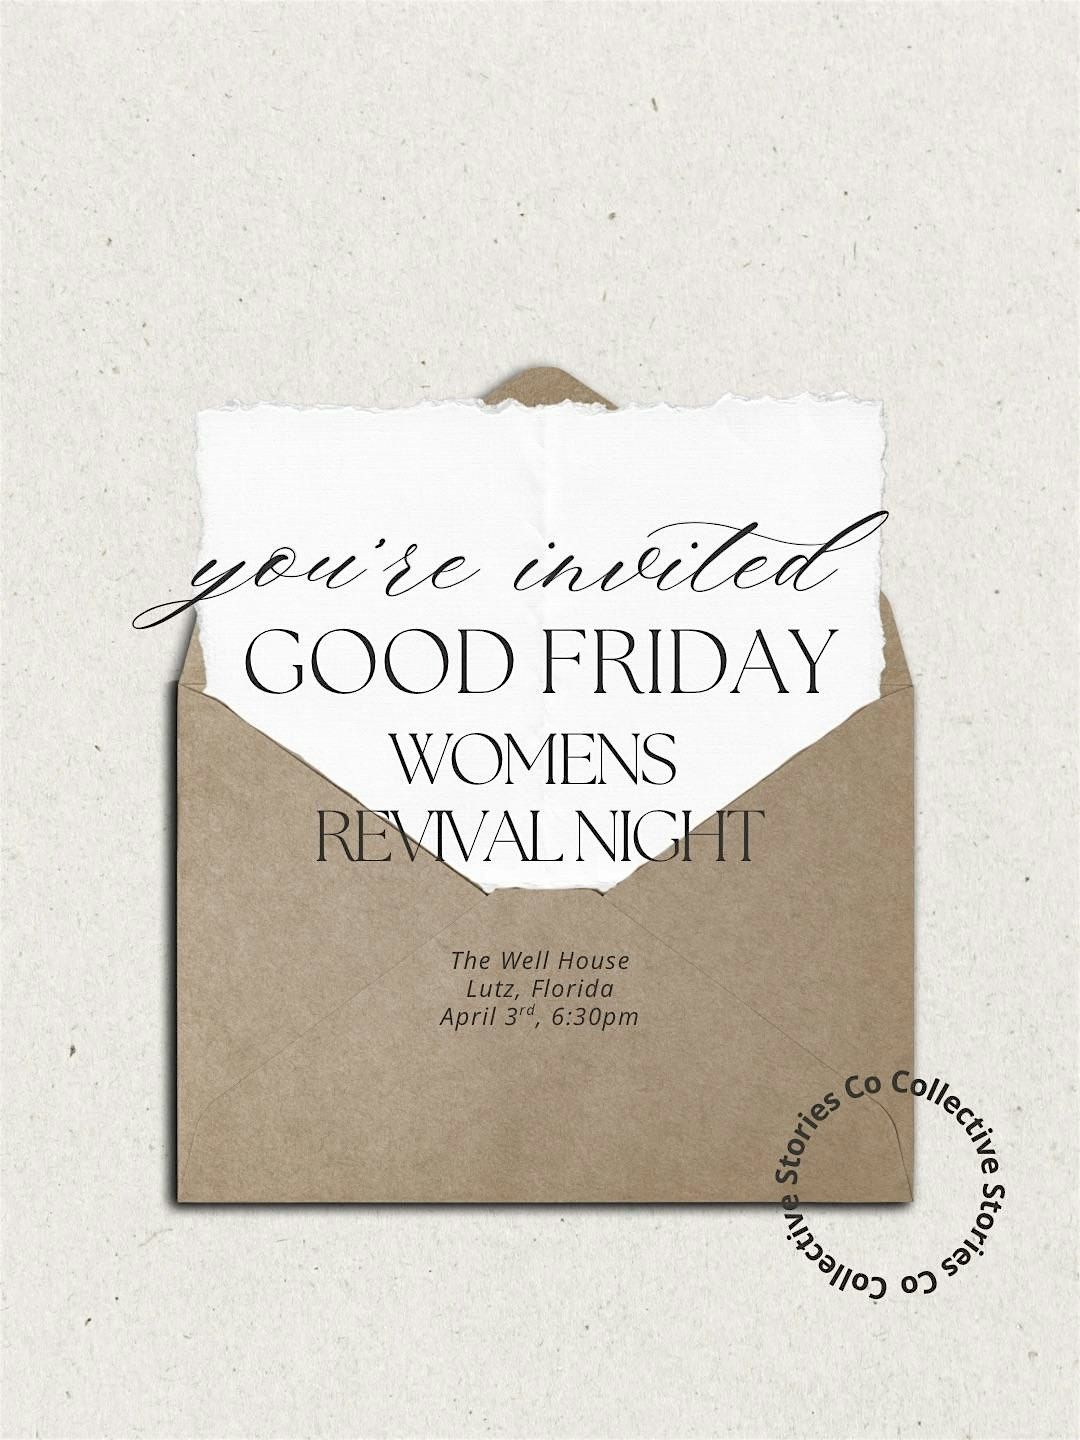 you're invited
GOOD FRIDAY
WOMENS
REVIVAL NIGHT
The Well House
Lutz, Florida
April 3rd, 6:30pm
Collective Stories Co Collective Stories Co